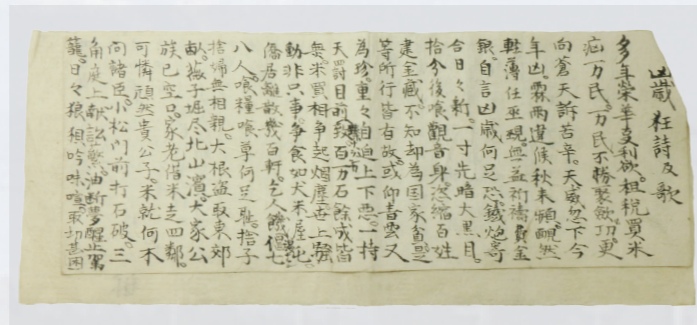 凶歳 狂詩及歌
多年栄華多利欲。租税買米
万民。万民不勝聚斂功。更
向蒼天訴苦辛。天忽下今
年凶。霖雨連候秋未靦然
軽薄任巫覡。無益祈祷費金
銀。自言凶歳何足恐。鐵炮寄
合日々新。一寸先暗大黒目。
拾今後喰観音身迄縮百姓
建金蔵。不知却為国家貧。是
等所行皆有故。或仰青雲又
為珍重々。自迫上下悪。一持
天罰目前致百万石餘成皆
無。米買相争起烟塵。世上騒
動非只事。争食如犬米屋屯
僑居離散幾百軒。乞人餓七
八人。喰糧喰草何足耻。捨子
捨婦無相親。大根盗取東郊
畝。薇子堀尽北山濱。大家公
族已空口。家老借米乏四鄰。
可憐頑然貴公子。米就何木
問諸臣。小松門前打石破。三
角庭上献訟繁。油断夢醒止駕
籠。日々狼狽吟味喧。取切甚困